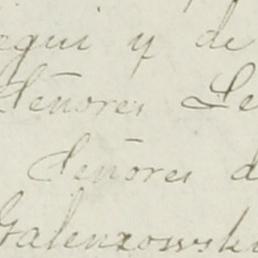 egui y de
Señores Le
Señores d
Galenzowski